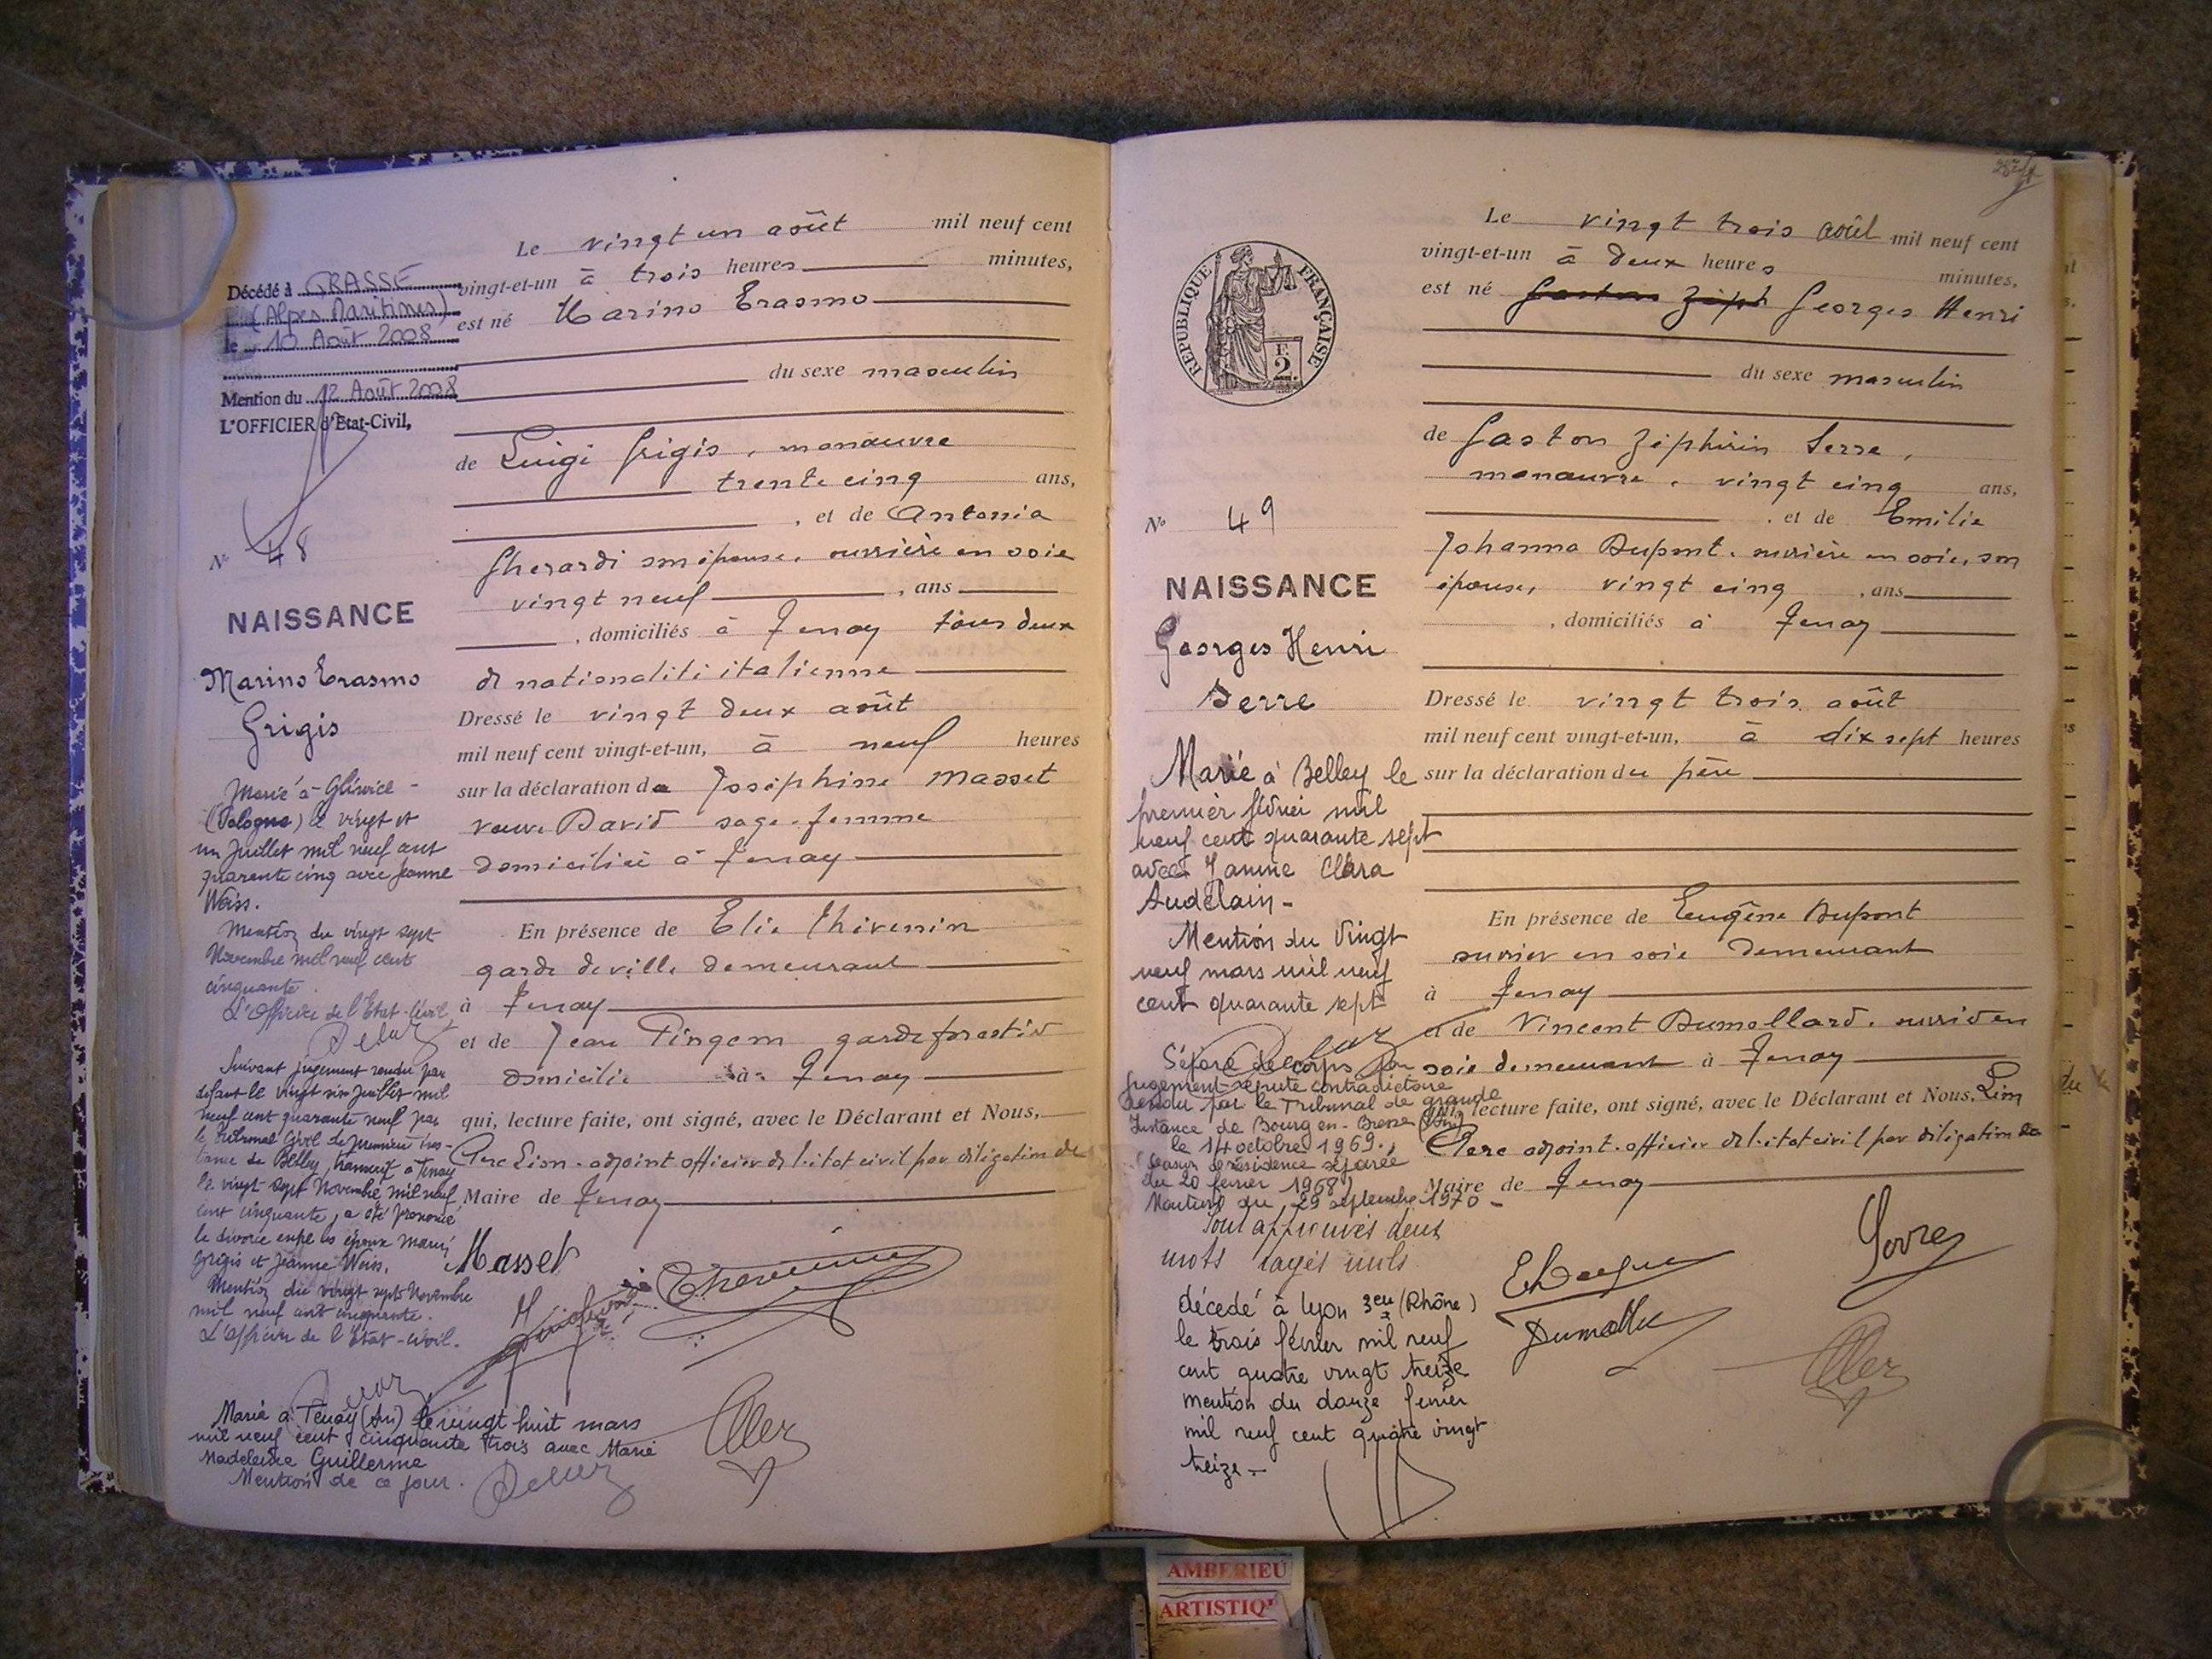 Décédé à GRASSE
(Alpes Maritimes)
le 10 Août 2008
Mention du 12 Août 2008
L'OFFICIER d'Etat-Civil,
N° 48
NAISSANCE
Marino Erasmo
Grigis
Marié à Gliwice
(Pologne) le vingt et
un Juillet mil neuf cent
quarante cinq avec Jeanne
Weiss.
Mention du vingt sept
Novembre mil neuf cent
cinquante.
L'Officier de l'Etat-Civil,
Suivant jugement rendu par
défaut le vingt six Juillet mil
neuf cent quarante neuf par
le Tribunal Civil de première Ins-
tance de Belley, transcrit à Tenay
le vingt sept Novembre mil neuf
cent cinquante, a été prononcé
le divorce entre les époux Marin
Grigis et Jeanne Weiss.
Mention du vingt sept Novembre
mil neuf cent cinquante.
L'Officier de l'Etat-Civil.
Marié à Tenay (Ain) le vingt huit mars
mil neuf cent cinquante trois avec Marie
Madeleine Guillerme
Mention de ce jour.
Le vingt un août mil neuf cent
vingt-et-un à trois heures minutes,
est né Marino Erasmo
du sexe masculin
de Luigi Grigis, manœuvre
trente cinq ans,
, et de Antonia
Gherardi son épouse, ouvrière en soie
vingt neuf , ans
, domiciliés à Tenay tous deux
de nationalité italienne
Dressé le vingt deux août
mil neuf cent vingt-et-un, à neuf heures
sur la déclaration de Joséphine Masset
veuve David sage-femme
domiciliée à Tenay
En présence de Elie Thivenin
garde de ville demeurant
à Tenay
et de Jean Pingeon garde forestier
domicilié à Tenay
qui, lecture faite, ont signé, avec le Déclarant et Nous,
Clerc Léon adjoint officier de l'état civil par délégation du
Maire de Tenay
Masset
Thevenin
Clerc
Le vingt trois août mil neuf cent
vingt-et-un à deux heures minutes,
est né Gaston Zéph Georges Henri
du sexe masculin
de Gaston Zéphirin Serre,
manœuvre, vingt cinq ans,
, et de Emilie
Johanna Dupont, ouvrière en soie, son
épouse, vingt cinq , ans
, domiciliés à Tenay
Dressé le vingt trois août
mil neuf cent vingt-et-un, à dix sept heures
sur la déclaration du père
En présence de Eugène Dupont
ouvrier en soie demeurant
à Tenay
et de Vincent Dumollard, ouvrier en
soie demeurant à Tenay
qui, lecture faite, ont signé, avec le Déclarant et Nous, Léon
Clerc adjoint officier de l'état civil par délégation du
Maire de Tenay
Serre
Clerc
RÉPUBLIQUE FRANÇAISE
F.
2.
N° 49
NAISSANCE
Georges Henri
Serre
Marié à Belley le
premier février mil
neuf cent quarante sept
avec Janine Clara
Audelain -
Mention du vingt
neuf mars mil neuf
cent quarante sept
Séparé de corps par
Jugement réputé contradictoire
rendu par le Tribunal de grande
Instance de Bourg en-Bresse (Ain)
le 14 octobre 1969.
résidence séparée
du 20 février 1968)
Mention du 29 septembre 1970 -
Sont approuvés deux
mots rayés nuls.
décédé à Lyon 3eu (Rhône)
le trois février mil neuf
cent quatre vingt treize
mention du douze février
mil neuf cent quatre vingt
treize -
AMBERIEU
ARTISTIQ